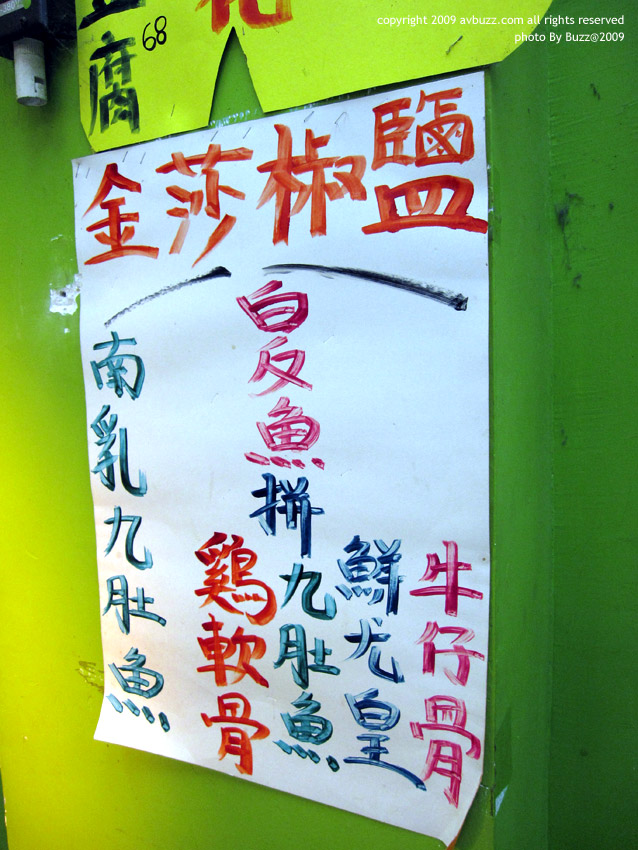 copyright 2009 avbuzz.com all rights reserved
photo By Buzz@2009
豆腐
68
金莎椒鹽
南乳九肚魚
鷄軟骨
白反魚拼九肚魚
鮮尤皇
牛仔骨